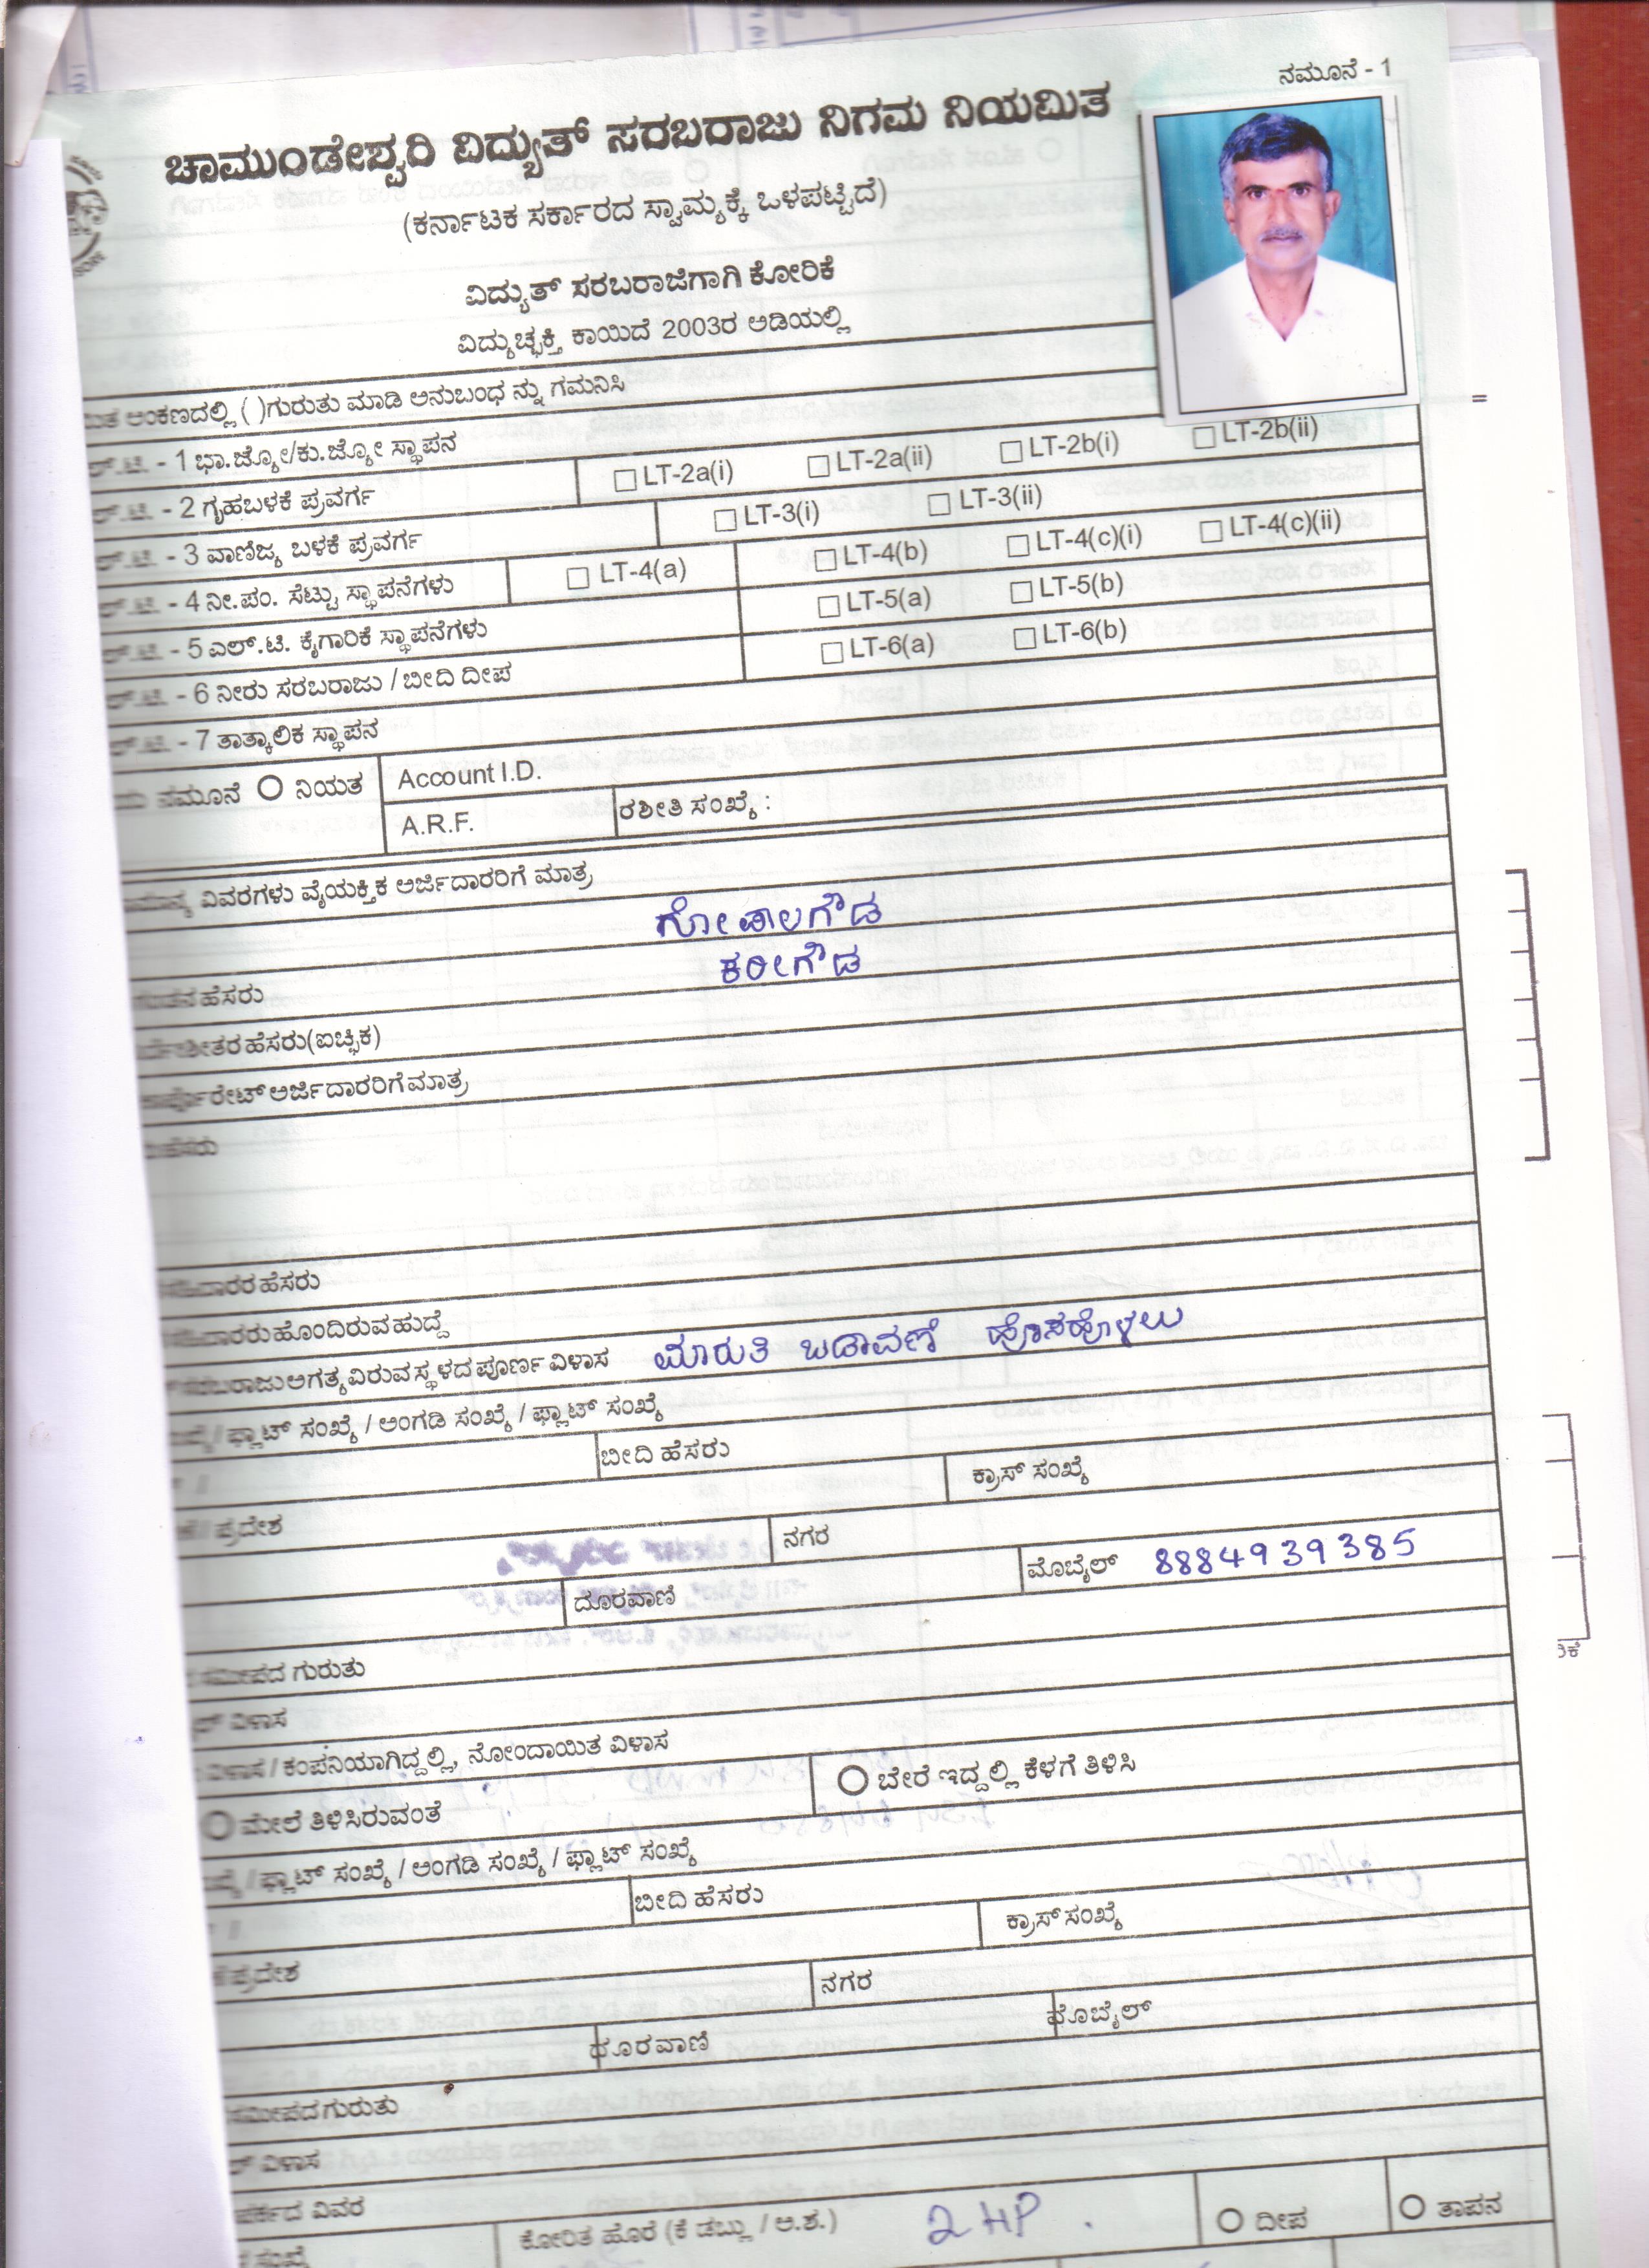 ನಮೂನೆ - 1
ಚಾಮುಂಡೇಶ್ವರಿ ವಿದ್ಯುತ್ ಸರಬರಾಜು ನಿಗಮ ನಿಯಮಿತ
(ಕರ್ನಾಟಕ ಸರ್ಕಾರದ ಸ್ವಾಮ್ಯಕ್ಕೆ ಒಳಪಟ್ಟಿದೆ)
ವಿದ್ಯುತ್ ಸರಬರಾಜಿಗಾಗಿ ಕೋರಿಕೆ
ವಿದ್ಯುಚ್ಛಕ್ತಿ ಕಾಯಿದೆ 2003ರ ಅಡಿಯಲ್ಲಿ
ಅಂಕಣದಲ್ಲಿ ( )ಗುರುತು ಮಾಡಿ ಅನುಬಂಧ ನ್ನು ಗಮನಿಸಿ
- 1 ಭಾ.ಜ್ಯೋ/ಕು.ಜ್ಯೋ ಸ್ಥಾಪನ
- 2 ಗೃಹಬಳಕೆ ಪ್ರವರ್ಗ LT-2a(i) LT-2a(ii) LT-2b(i) LT-2b(ii)
- 3 ವಾಣಿಜ್ಯ ಬಳಕೆ ಪ್ರವರ್ಗ LT-3(i) LT-3(ii)
- 4 ನೀ.ಪಂ. ಸೆಟ್ಟು ಸ್ಥಾಪನೆಗಳು LT-4(a) LT-4(b) LT-4(c)(i) LT-4(c)(ii)
- 5 ಎಲ್.ಟಿ. ಕೈಗಾರಿಕೆ ಸ್ಥಾಪನೆಗಳು LT-5(a) LT-5(b)
- 6 ನೀರು ಸರಬರಾಜು / ಬೀದಿ ದೀಪ LT-6(a) LT-6(b)
- 7 ತಾತ್ಕಾಲಿಕ ಸ್ಥಾಪನ
ನಮೂನೆ ನಿಯತ Account I.D.
A.R.F. ರಶೀತಿ ಸಂಖ್ಯೆ :
ವಿವರಗಳು ವೈಯಕ್ತಿಕ ಅರ್ಜಿದಾರರಿಗೆ ಮಾತ್ರ
ಗೋಪಾಲಗೌಡ
ಹೆಸರು ಕರೀಗೌಡ
ಹೆಸರು(ಐಚ್ಛಿಕ)
ಅರ್ಜಿದಾರರಿಗೆ ಮಾತ್ರ
ಹೆಸರು
ಹೆಸರು
ಹೊಂದಿರುವ ಹುದ್ದೆ
ಅಗತ್ಯವಿರುವ ಸ್ಥಳದ ಪೂರ್ಣ ವಿಳಾಸ ಮಾರುತಿ ಬಡಾವಣೆ ಹೊಸಹೊಳಲು
/ ಫ್ಲಾಟ್ ಸಂಖ್ಯೆ / ಅಂಗಡಿ ಸಂಖ್ಯೆ / ಫ್ಲಾಟ್ ಸಂಖ್ಯೆ
ಬೀದಿ ಹೆಸರು ಕ್ರಾಸ್ ಸಂಖ್ಯೆ
/ ಪ್ರದೇಶ ನಗರ
ದೂರವಾಣಿ ಮೊಬೈಲ್ 8884939385
ಸಮೀಪದ ಗುರುತು
ವಿಳಾಸ
ವಿಳಾಸ / ಕಂಪನಿಯಾಗಿದ್ದಲ್ಲಿ, ನೋಂದಾಯಿತ ವಿಳಾಸ
ಮೇಲೆ ತಿಳಿಸಿರುವಂತೆ ಬೇರೆ ಇದ್ದಲ್ಲಿ ಕೆಳಗೆ ತಿಳಿಸಿ
/ ಫ್ಲಾಟ್ ಸಂಖ್ಯೆ / ಅಂಗಡಿ ಸಂಖ್ಯೆ / ಫ್ಲಾಟ್ ಸಂಖ್ಯೆ
ಬೀದಿ ಹೆಸರು ಕ್ರಾಸ್ ಸಂಖ್ಯೆ
ಪ್ರದೇಶ ನಗರ
ದೂರವಾಣಿ ಮೊಬೈಲ್
ಸಮೀಪದ ಗುರುತು
ವಿಳಾಸ
ವಿವರ
ಸಂಖ್ಯೆ ಕೋರಿತ ಹೊರೆ (ಕೆ ಡಬ್ಲು / ಅ.ಶ.) 2 HP . ದೀಪ ತಾಪನ